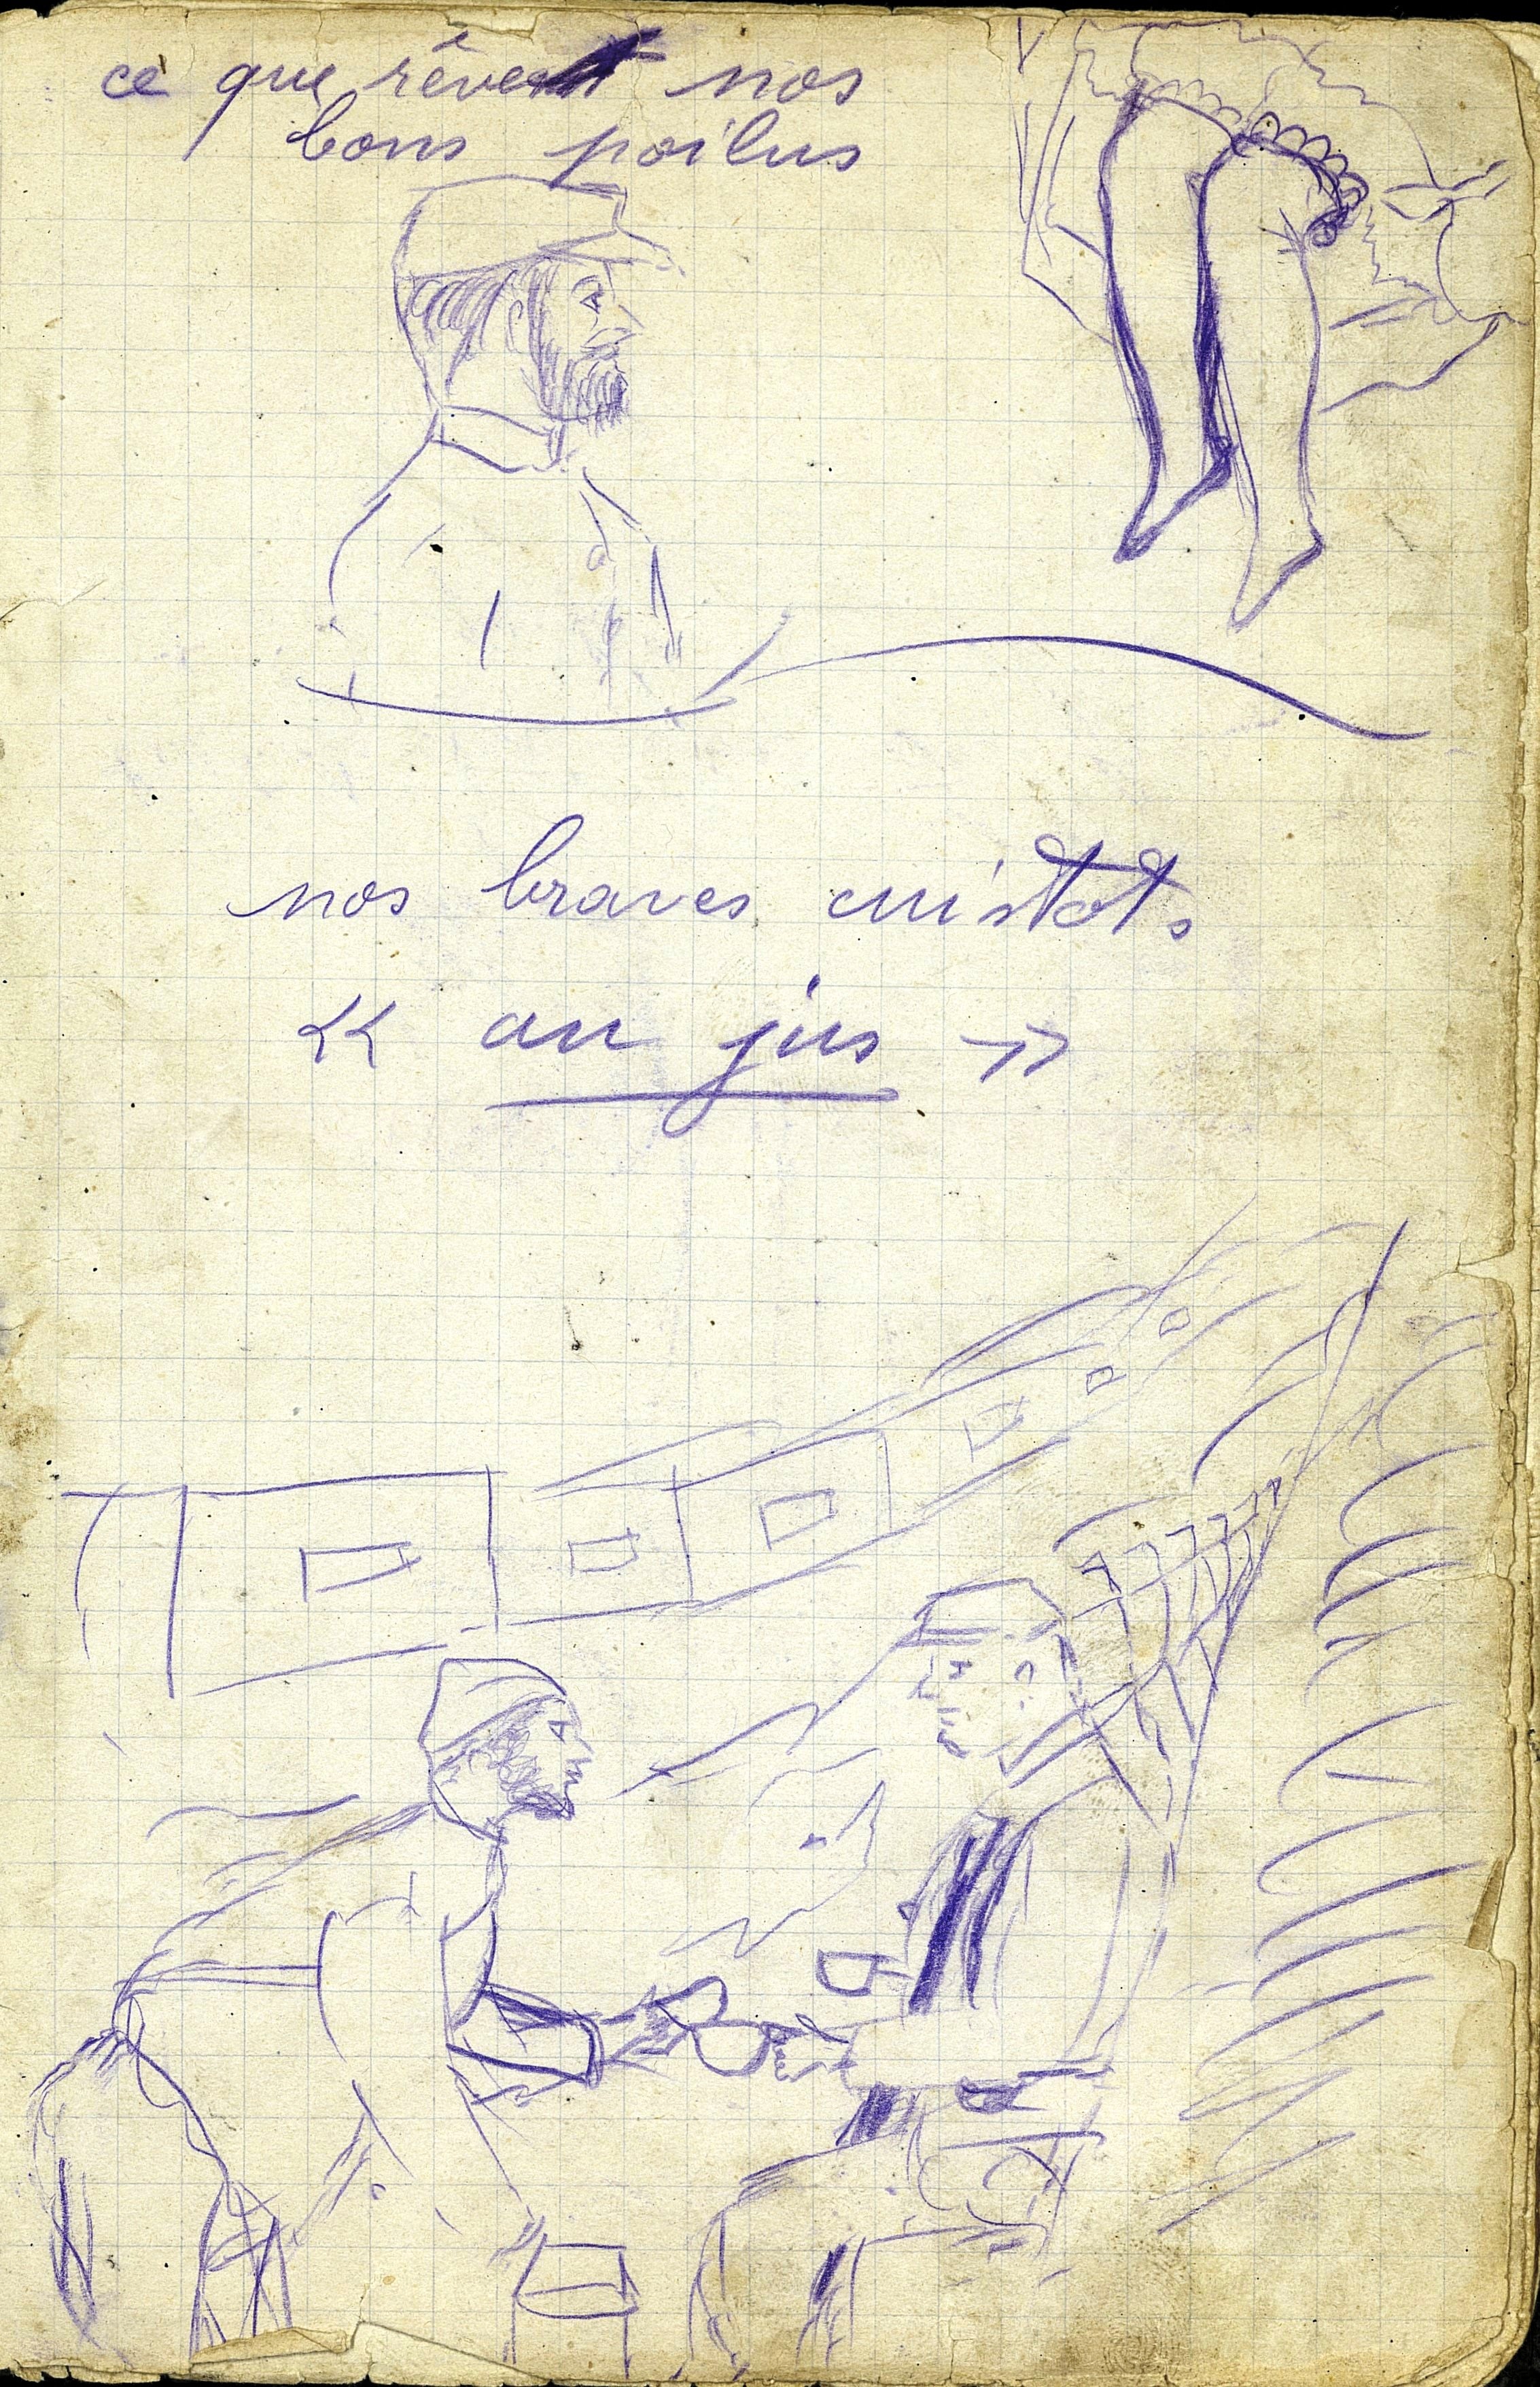 ce que rêvent nos
bons poilus
nos braves cuistots
<< au jus >>